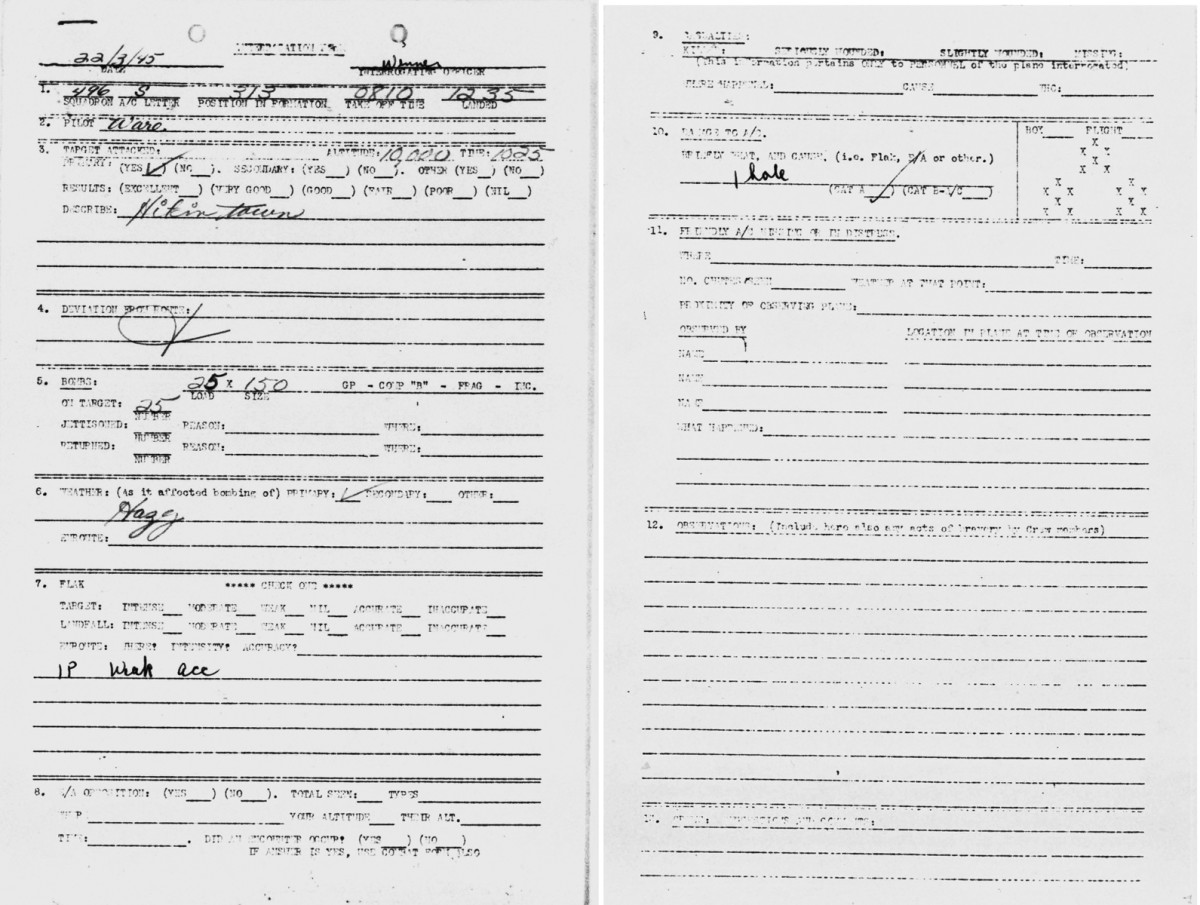 INTERROGATION FORM
22/3/45
DATE
INTERROGATING OFFICER
1. 496 S 313 0810 1235
SQUADRON A/C LETTER POSITION IN FORMATION TAKE OFF TIME LANDED
2. PILOT Ware.
3. TARGET ATTACKED: ALTITUDE: 10,000 TIME: 1025
PRIMARY: (YES ✓) (NO ). SECONDARY: (YES ) (NO ). OTHER (YES ) (NO )
RESULTS: (EXCELLENT ) (VERY GOOD ) (GOOD ) (FAIR ) (POOR ) (NIL )
DESCRIBE: town
4. DEVIATION FROM ROUTE:
5. BOMBS: 25 x 150 GP - COMP "B" - FRAG - INC.
LOAD SIZE
ON TARGET: 25
NUMBER
JETTISONED: REASON: WHERE:
NUMBER
RETURNED: REASON: WHERE:
NUMBER
6. WEATHER: (As it affected bombing of) PRIMARY: ✓ SECONDARY: OTHER:
Hazy
ENROUTE:
7. FLAK ***** CHECK ONE *****
TARGET: INTENSE MODERATE WEAK NIL ACCURATE INACCURATE
LANDFALL: INTENSE MODERATE WEAK NIL ACCURATE INACCURATE
ENROUTE: WHERE? INTENSITY? ACCURACY?
IP Weak acc
8. E/A OPPOSITION: (YES ) (NO ). TOTAL SEEN: TYPES
YOUR ALTITUDE THEIR ALT.
TIME: . DID AN ENCOUNTER OCCUR? (YES ) (NO )
IF ANSWER IS YES, USE COMBAT FORM ALSO
9. CASUALTIES:
KILLED: SERIOUSLY WOUNDED: SLIGHTLY WOUNDED: MISSING:
(This information pertains ONLY to PERSONNEL of the plane interrogated)
WHERE HAPPENED: CAUSE WHO:
10. DAMAGE TO A/C. BOX FLIGHT
BRIEFLY WHAT, AND CAUSE. (i.e. Flak, E/A or other.)
1 hole
(CAT A ) (CAT B-1/C )
X
X X
X
X X
X X X X
X X X X
X X X
11. FRIENDLY A/C MISSING OR IN DISTRESS.
WHERE TIME:
NO. CHUTES SEEN WEATHER AT THAT POINT:
PROXIMITY OF OBSERVING PLANE:
OBSERVED BY LOCATION IN PLANE AT TIME OF OBSERVATION
NAME
NAME
NAME
WHAT HAPPENED:
12. OBSERVATIONS: (Include here also any acts of bravery by Crew members)